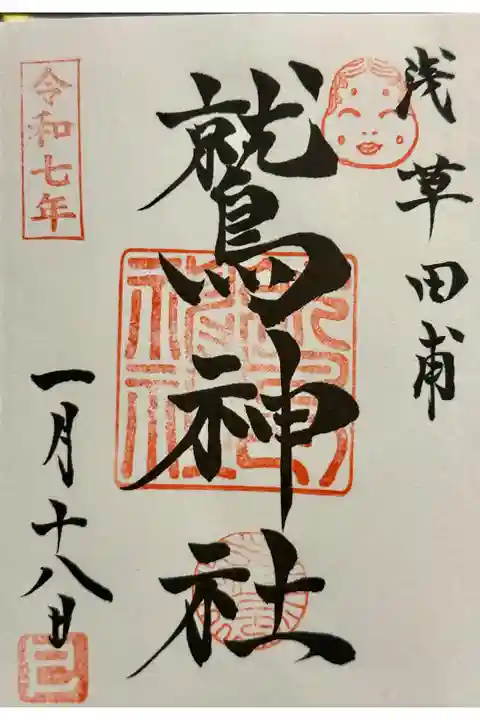 浅草田甫
鷲神社
令和七年
一月十八日
巳